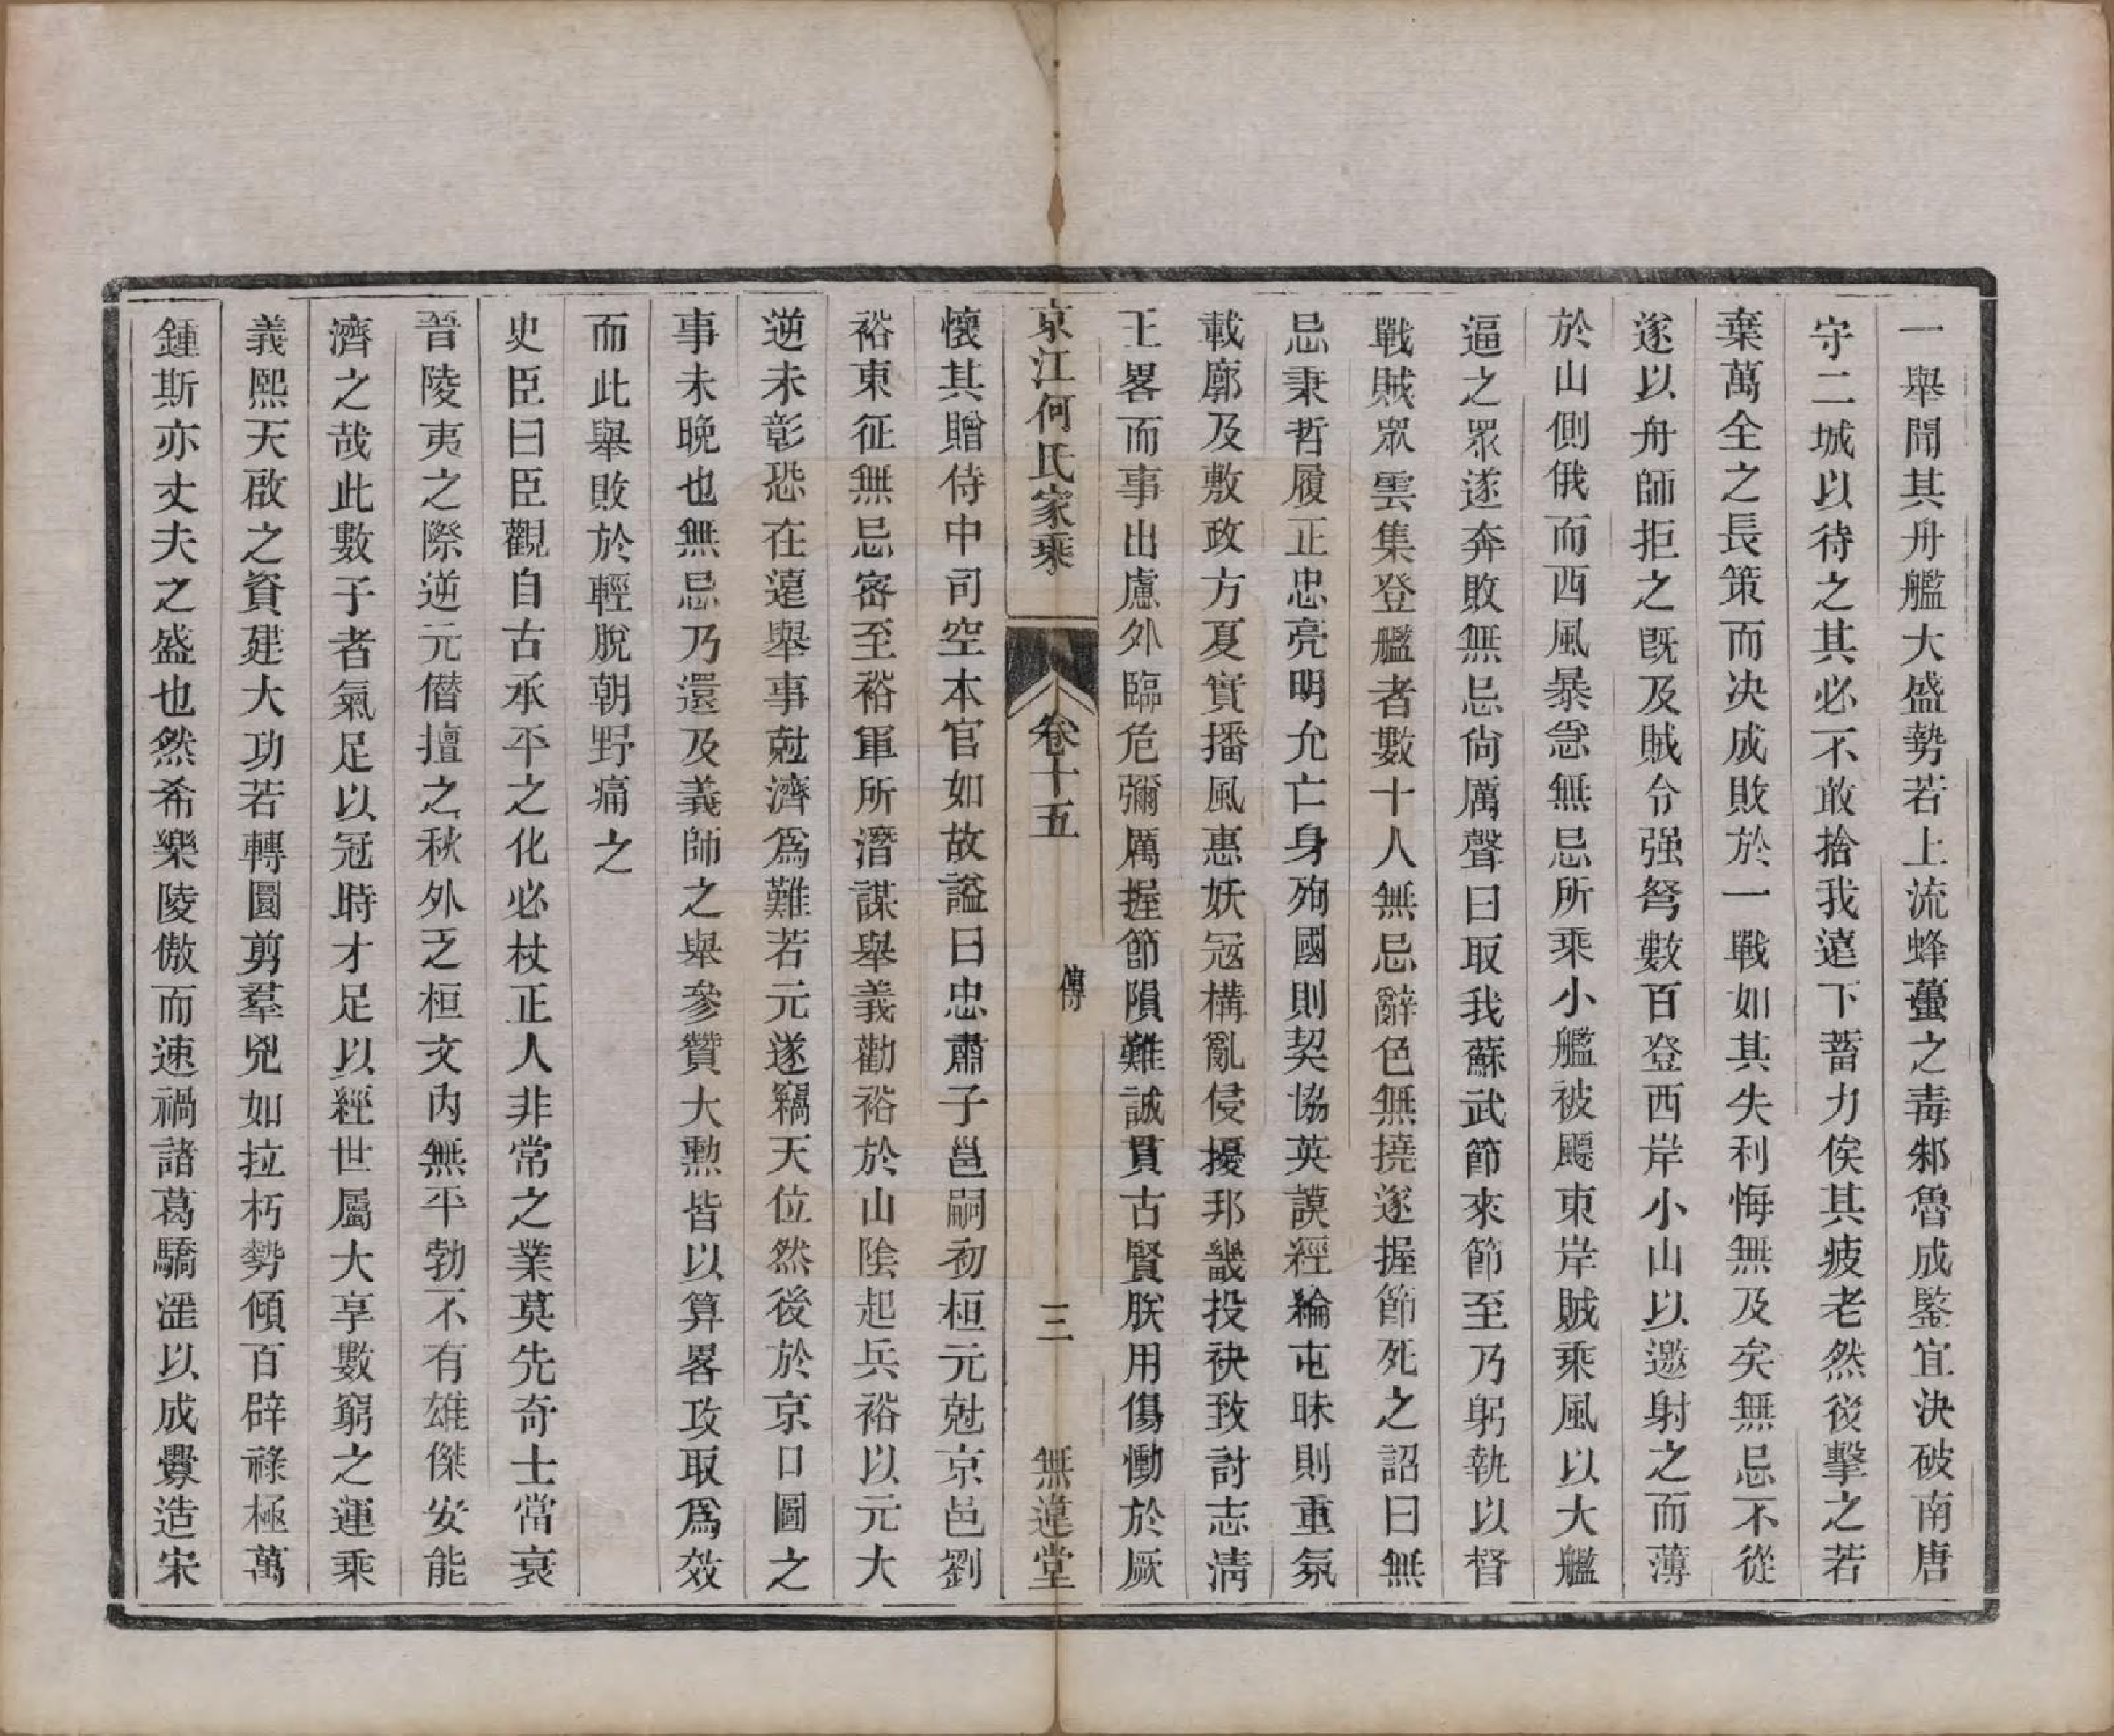 一舉聞其舟艦大盛勢若上流蜂蠆之毒邾魯成鑒宜決破南唐
守二城以待之其必不敢捨我遠下蓄力俟其疲老然後擊之若
棄萬全之長策而決成敗於一戰如其失利悔無及矣無忌不從
遂以舟師拒之旣及賊令强弩數百登西岸小山以邀射之而薄
於山側俄而西風暴急無忌所乘小艦被飃東岸賊乘風以大艦
逼之眾遂奔敗無忌尙厲聲曰取我蘇武節來節至乃躬執以督
戰賊眾雲集登艦者數十人無忌辭色無撓遂握節死之詔曰無
忌秉哲履正忠亮明允亡身殉國則契協英謨經綸屯昧則重氛
載廓及敷政方夏實播風惠妖冦構亂侵擾邦畿投袂致討志淸
王畧而事出慮外臨危彌厲握節隕難誠貫古賢朕用傷慟於厥
京江何氏家乘 卷十五 傳 三 無違堂
懷其贈侍中司空本官如故謚曰忠肅子邕嗣初桓元尅京邑劉
裕東征無忌密至裕軍所潛謀舉義勸裕於山陰起兵裕以元大
逆未彰恐在遠舉事尅濟爲難若元遂竊天位然後於京口圖之
事未晚也無忌乃還及義師之舉參贊大勲皆以算畧攻取爲效
而此舉敗於輕脫朝野痛之
史臣曰臣觀自古承平之化必杖正人非常之業莫先奇士當衰
晉陵夷之際逆元僭擅之秋外乏桓文內無平勃不有雄傑安能
濟之哉此數子者氣足以冠時才足以經世屬大享數窮之運乘
義熙天啟之資建大功若轉圜剪羣兇如拉朽勢傾百辟祿極萬
鍾斯亦丈夫之盛也然希樂陵傲而速禍諸葛驕淫以成釁造宋